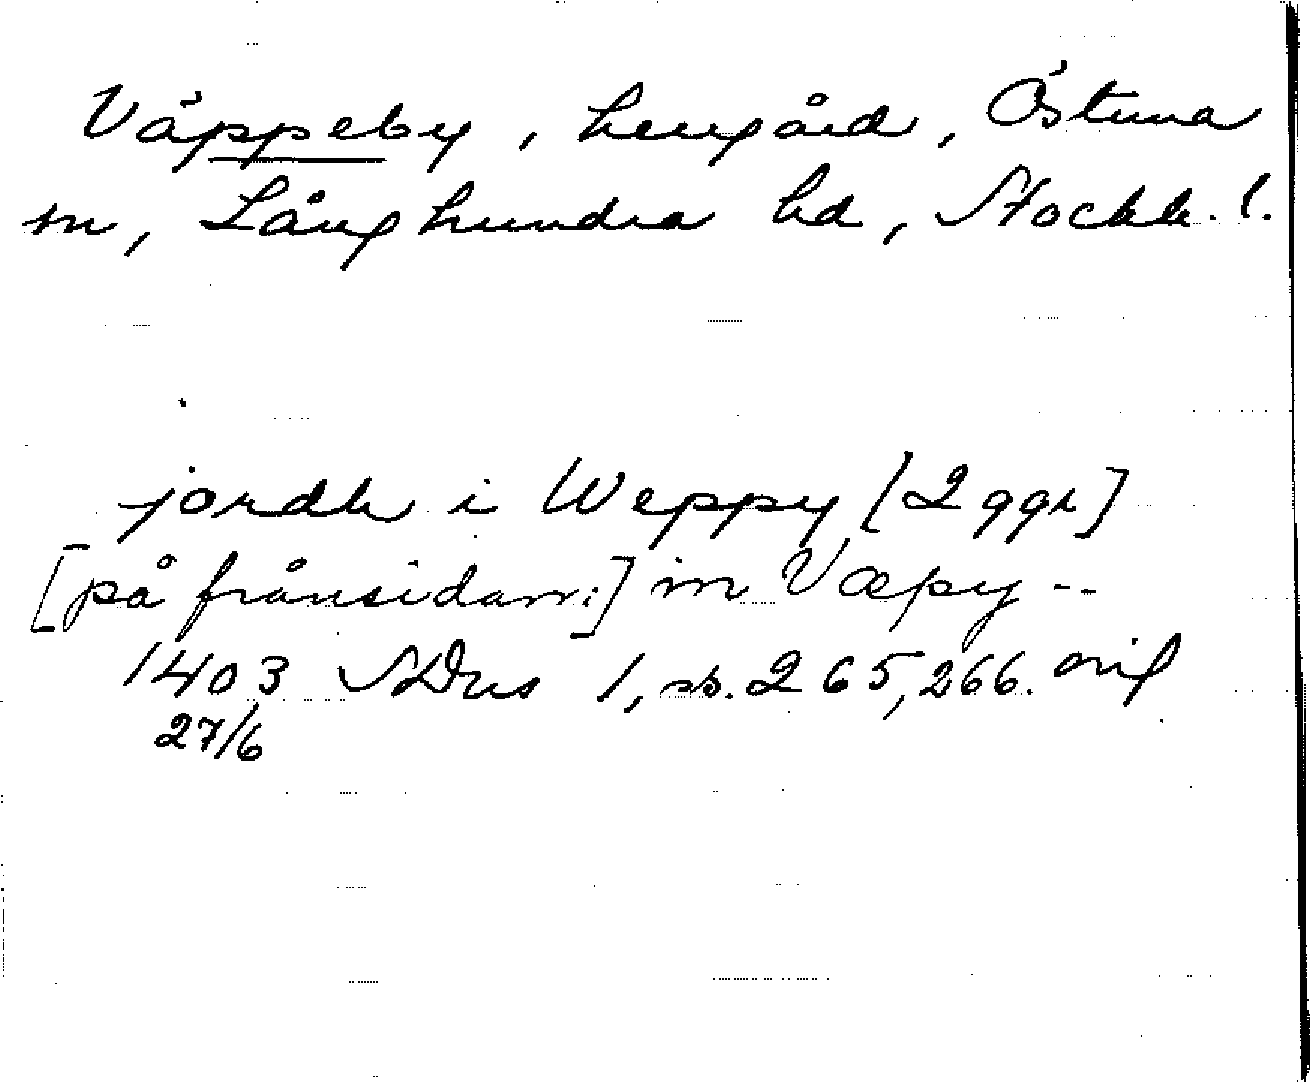 Väppeby, herrgård, Östuna
sn, Långhundra hd, Stockh. l.
jordh i Weppy [2 ggr]
[på frånsidan:] in Væpy --
1403 SDns 1, ss. 265, 266. orig
27/6